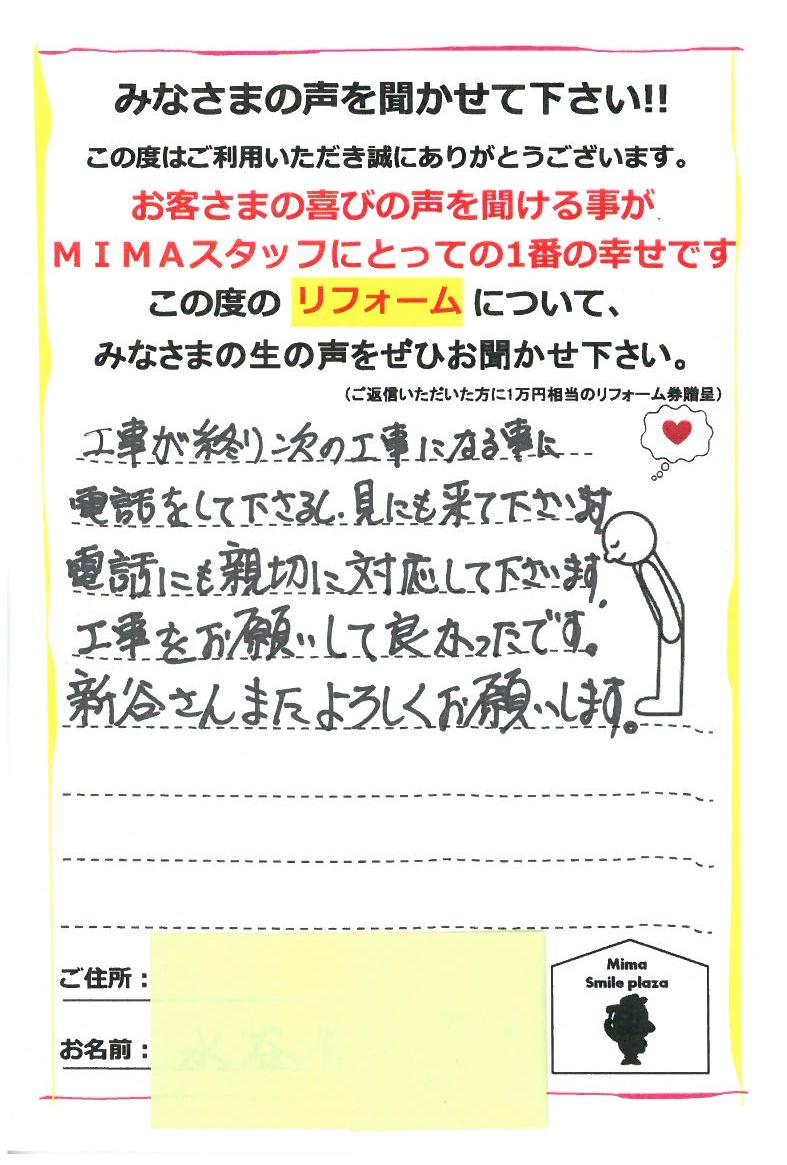 みなさまの声を聞かせて下さい!!
この度はご利用いただき誠にありがとうございます。
お客さまの喜びの声を聞ける事が
ＭＩＭＡスタッフにとっての1番の幸せです
この度の リフォーム について、
みなさまの生の声をぜひお聞かせ下さい。
（ご返信いただいた方に1万円相当のリフォーム券贈呈）
工事が終り次の工事になる事に
電話をして下さるし、見にも来て下さいます
電話にも親切に対応して下さいます。
工事をお願いして良かったです。
新谷さんまたよろしくお願いします。
ご住所：
お名前：
Mima
Smile plaza